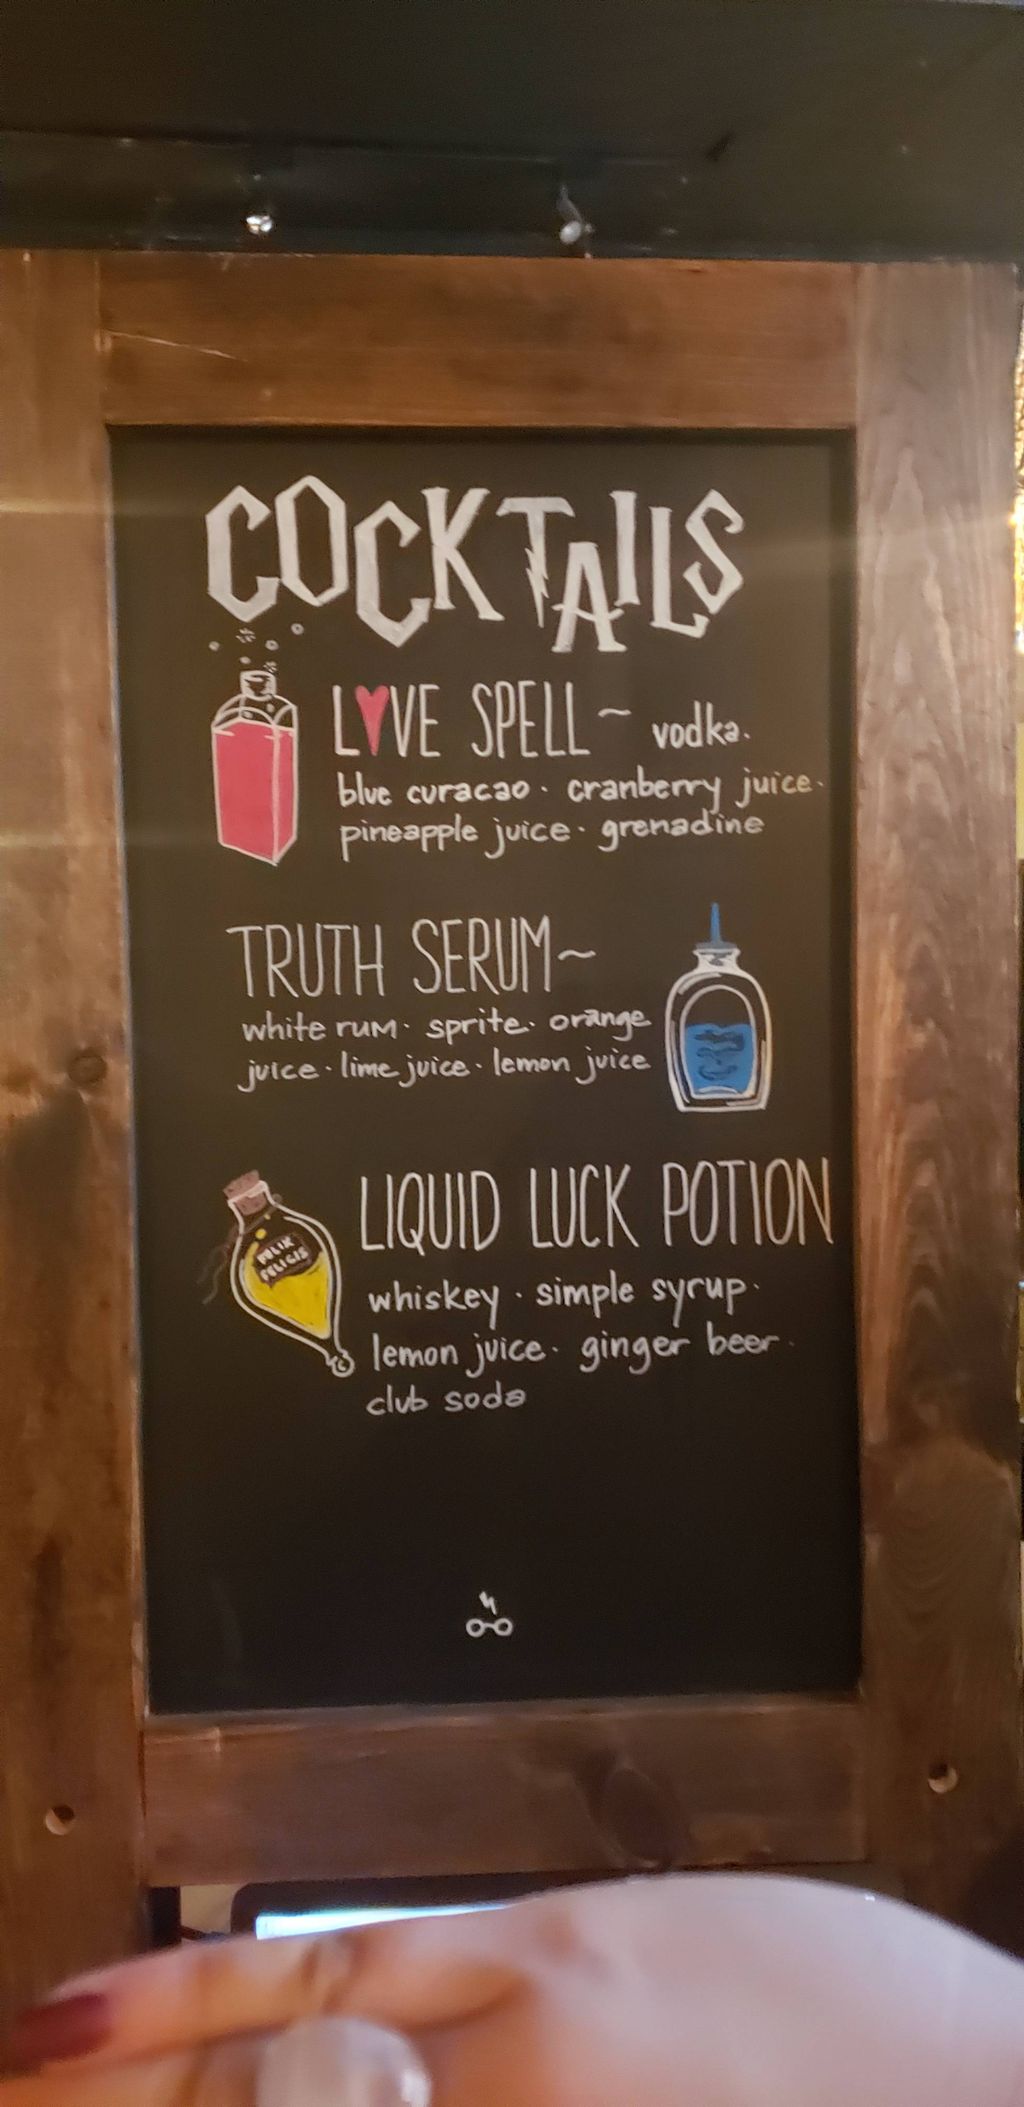 COCKTAILS
L♥VE SPELL ~ vodka.
blue curacao · cranberry juice ·
pineapple juice · grenadine
TRUTH SERUM ~
white rum · sprite · orange
juice · lime juice · lemon juice
LIQUID LUCK POTION
FELIX
FELICIS
whiskey · simple syrup ·
lemon juice · ginger beer ·
club soda